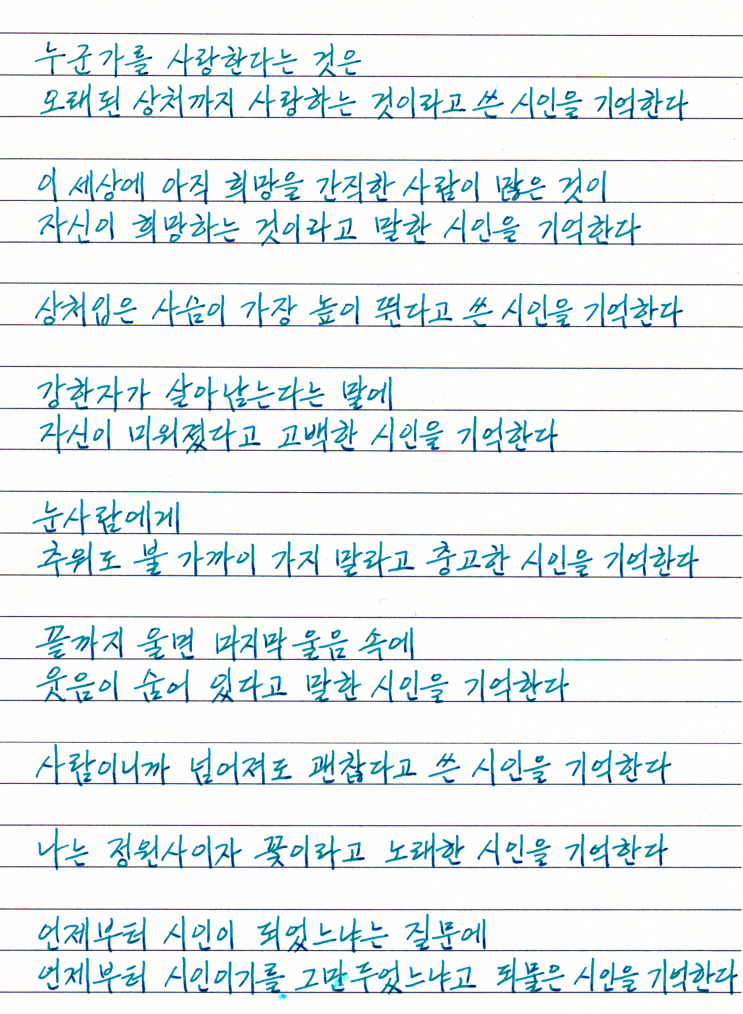 누군가를 사랑한다는 것은
오래된 상처까지 사랑하는 것이라고 쓴 시인을 기억한다
이 세상에 아직 희망을 간직한 사람이 많은 것이
자신이 희망하는 것이라고 말한 시인을 기억한다
상처입은 사슴이 가장 높이 뛴다고 쓴 시인을 기억한다
강한자가 살아남는다는 말에
자신이 미워졌다고 고백한 시인을 기억한다
눈사람에게
추워도 불 가까이 가지 말라고 충고한 시인을 기억한다
끝까지 울면 마지막 울음 속에
웃음이 숨어 있다고 말한 시인을 기억한다
사람이니까 넘어져도 괜찮다고 쓴 시인을 기억한다
나는 정원사이자 꽃이라고 노래한 시인을 기억한다
언제부터 시인이 되었느냐는 질문에
언제부터 시인이기를 그만두었느냐고 되물은 시인을 기억한다